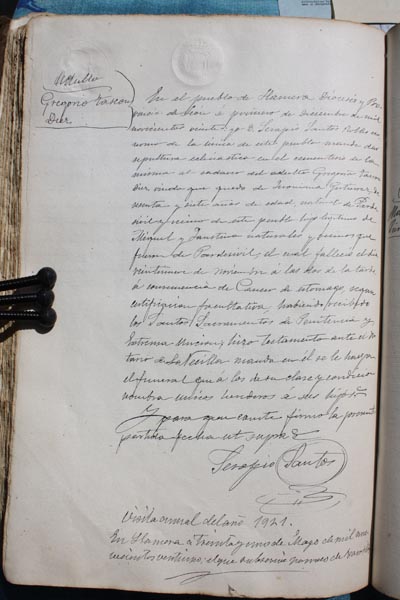 Adulto
Gregorio Tascon
Diez
En el pueblo de Llamera Diocesis y Pro
vincia de Leon á primero de Diciembre de mil
novecientos veinte, yo D. Serapio Santos Robles ec
nomo de la unica de este pueblo mandé dar
sepultura eclesiastica en el cementerio de la
misma al cadaver del adulto Gregorio Tascon
Diez, viudo que quedó de Geronima
senta y siete años de edad, natural de
y vecino de este pueblo hijo legitimo de
Miguel y Faustina naturales y vecinos que
fueron de el cual falleció el dia
veintinueve de noviembre á las dos de la tarde
á consecuencia de Cancer de estomago, segun
certificacion facultativa habiendo recibido
los Santos Sacramentos de Penitencia y
Extrema Uncion; hizo testamento ante el No
tario de La Vecilla manda en él se le haga
el funeral que á los de su clase y condicion
nombra unicos herederos a sus hijos
Y para que conste firmo la presente
partida fecha ut supra
Serapio Santos
Visita anual del año 1921.
En Llamera a treinta y uno de Mayo de mil no
vecientos veintiuno,